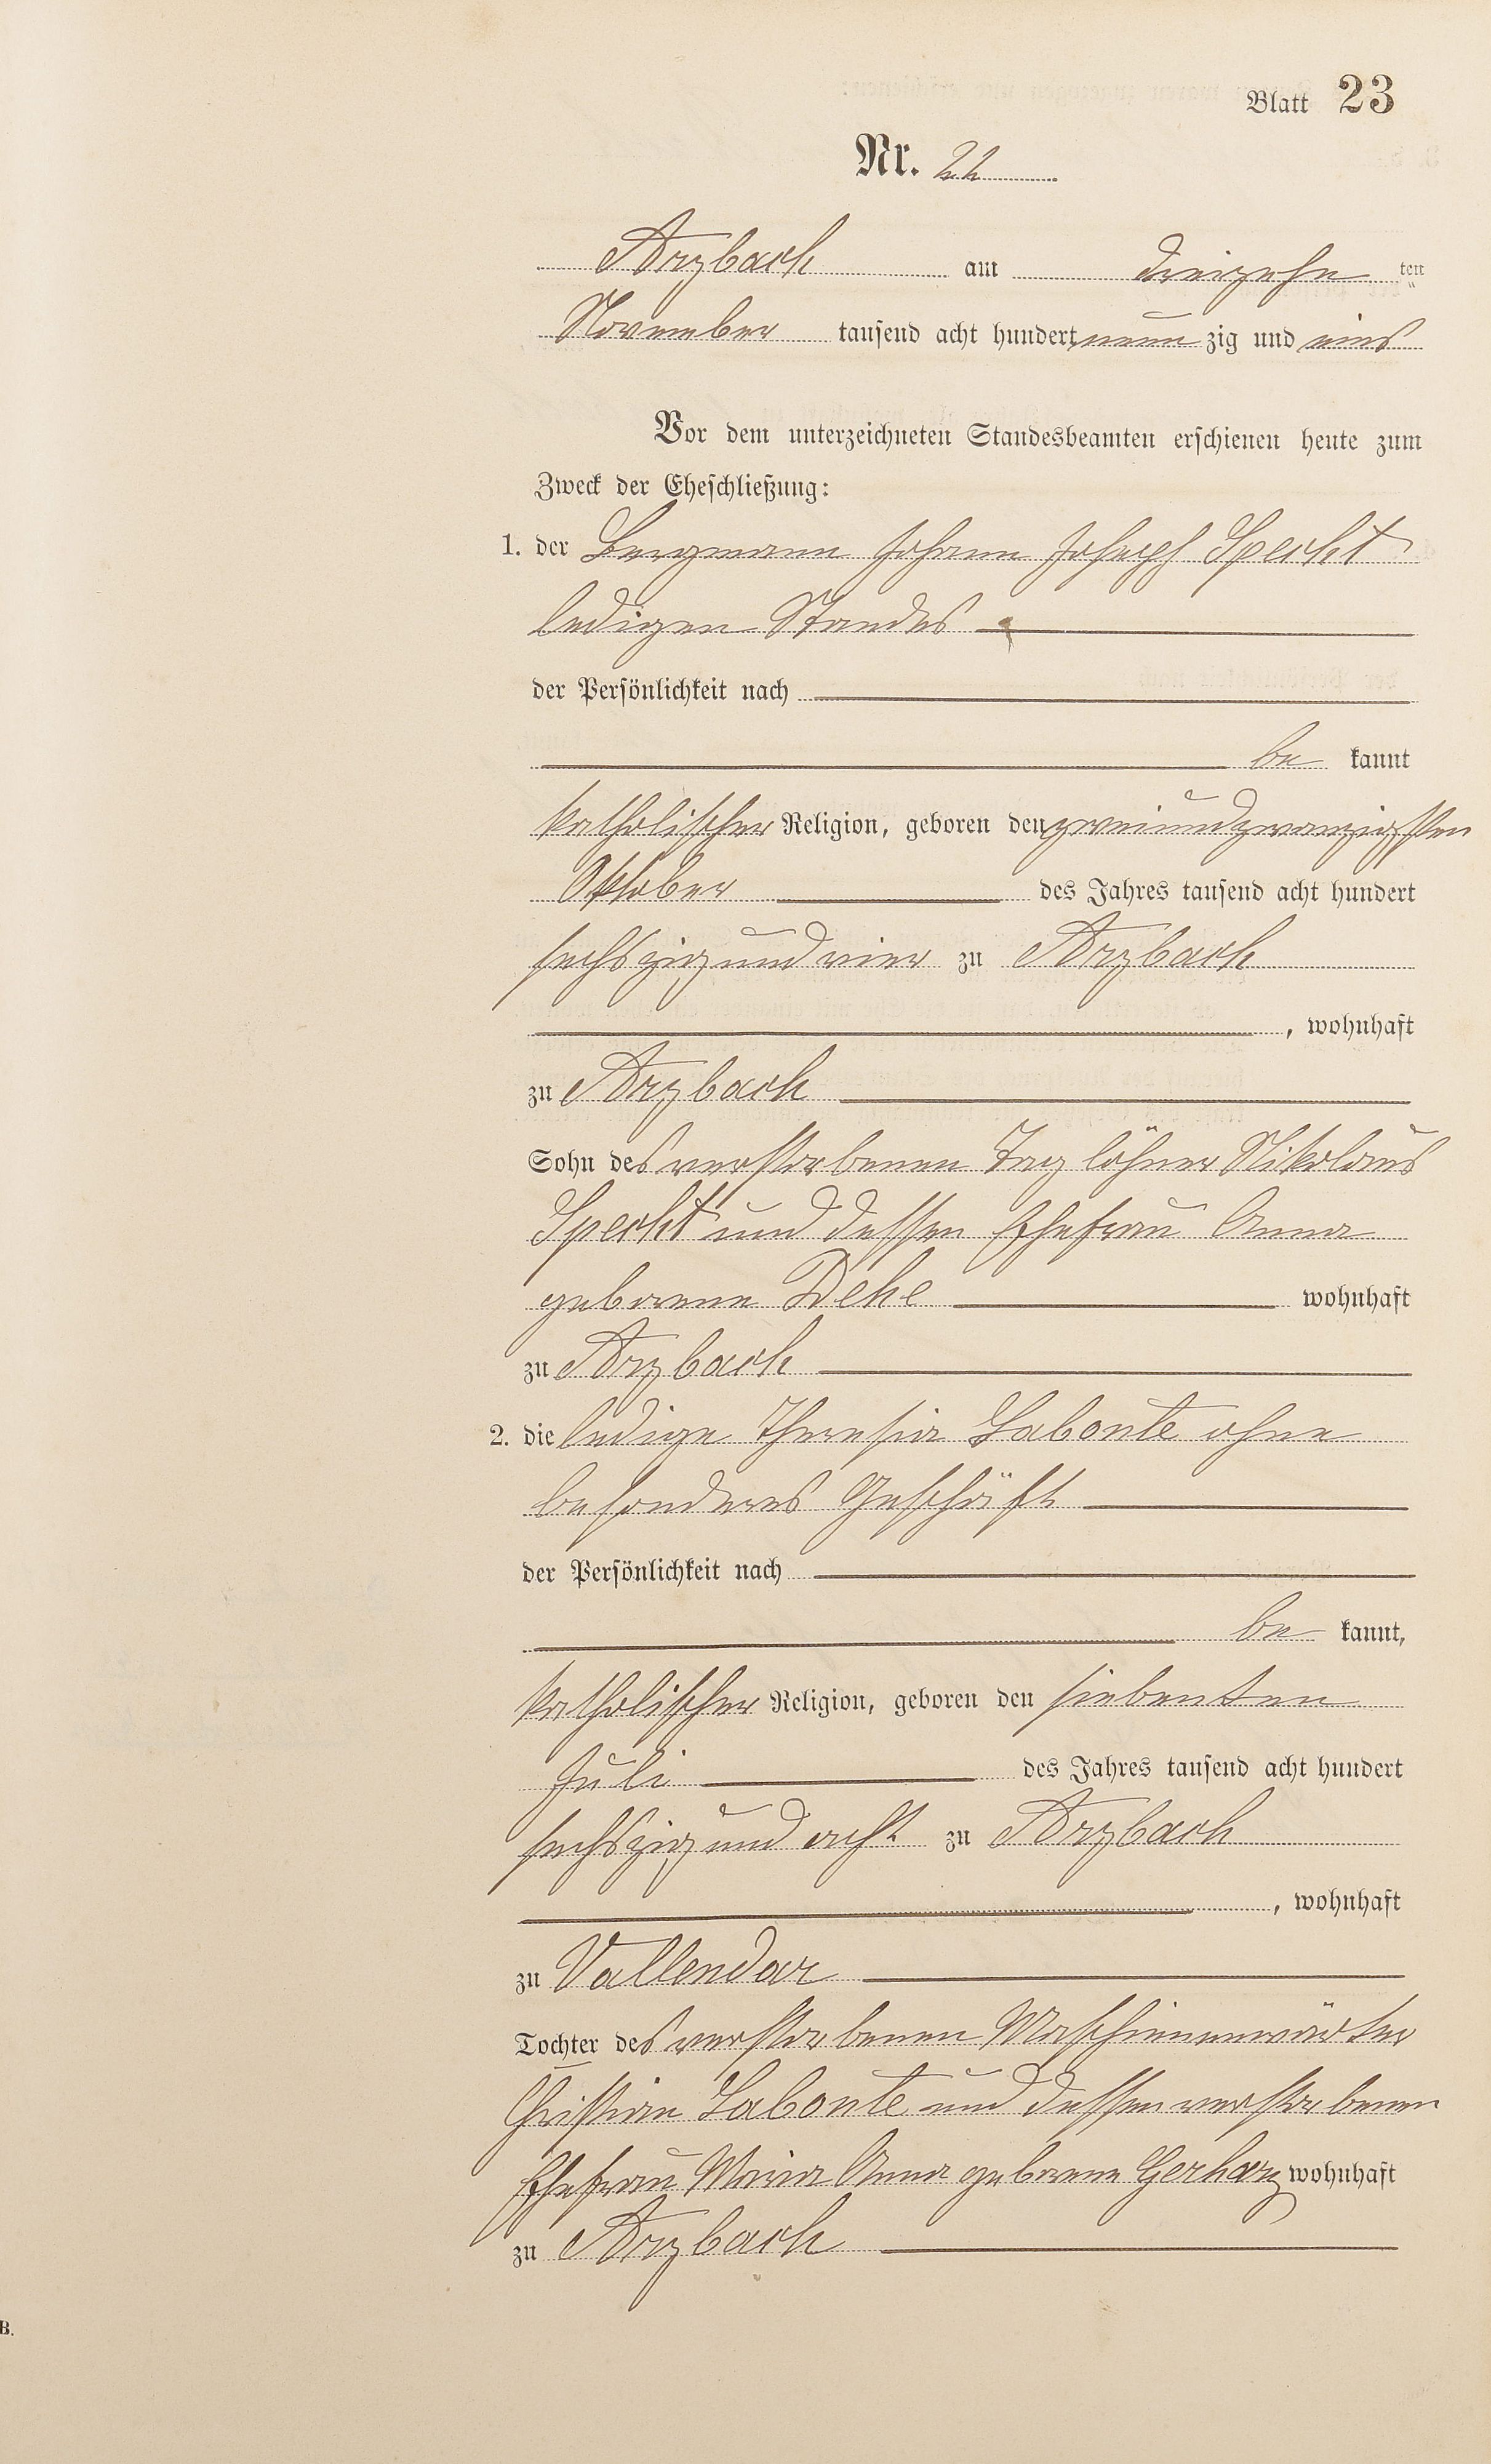 Blatt 23
Nr. 22
Arzbach am dreizehn ten
November tausend acht hundert neun zig und eins
Vor dem unterzeichneten Standesbeamten erschienen heute zum
Zweck der Eheschließung:
1. der Bergmann Johann Joseph Specht
ledigen Standes
der Persönlichkeit nach
be kannt
katholischer Religion, geboren den zweiundzwanzigsten
Oktober des Jahres tausend acht hundert
sechszig und vier zu Arzbach
, wohnhaft
zu Arzbach
Sohn des verstorbenen Taglöhner Nikolaus
Specht und dessen Ehefrau Anna
geborene Dehe wohnhaft
zu Arzbach
2. die ledige Theresia Labonte ohne
besonderes Geschäft
der Persönlichkeit nach
be kannt,
katholischer Religion, geboren den siebenten
Juli des Jahres tausend acht hundert
sechszig und acht zu Arzbach
, wohnhaft
zu Vallendar
Tochter des verstorbenen Maschinenwärter
Christian Labonte und dessen verstorbenen
Ehefrau Maria Anna geborene Gerharz wohnhaft
zu Arzbach
B.